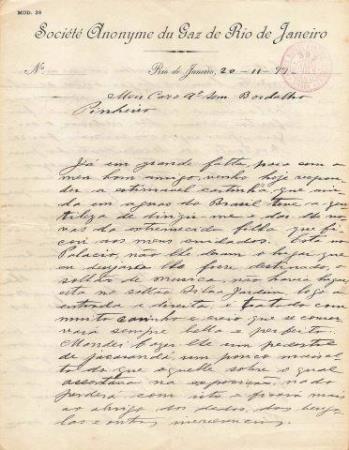 MOD. 26
Société Anonyme du Gaz de Rio de Janeiro
Nº
Rio de Janeiro, 20-11-99
Meu Caro Am. Bordallo
Pinheiro
Já em grande falta para com o
meu bom amigo, venho hoje respon
der a estimavel cartinha que ain
da em aguas do Brasil teve a gen
tileza de dirigir-me e dar-lhe no
vas da estremecida filha que fi
cou aos meus cuidados. Está no
Palacio, não lhe deram o logar que
eu desejava
salão de musica, não havia logar,
está no salão Jardim, logo
entrada a direita, é tratada com
muito carinho e creio que se conser
vará sempre bella e perfeita.
Mandei fazer-lhe um pedestal
de jacarandá, um pouco mais al
to do que aquelle sobre o qual
assentava na exposição, nada
perderá com isto e ficará mais
ao abrigo dos dedos, das benga
las e outros